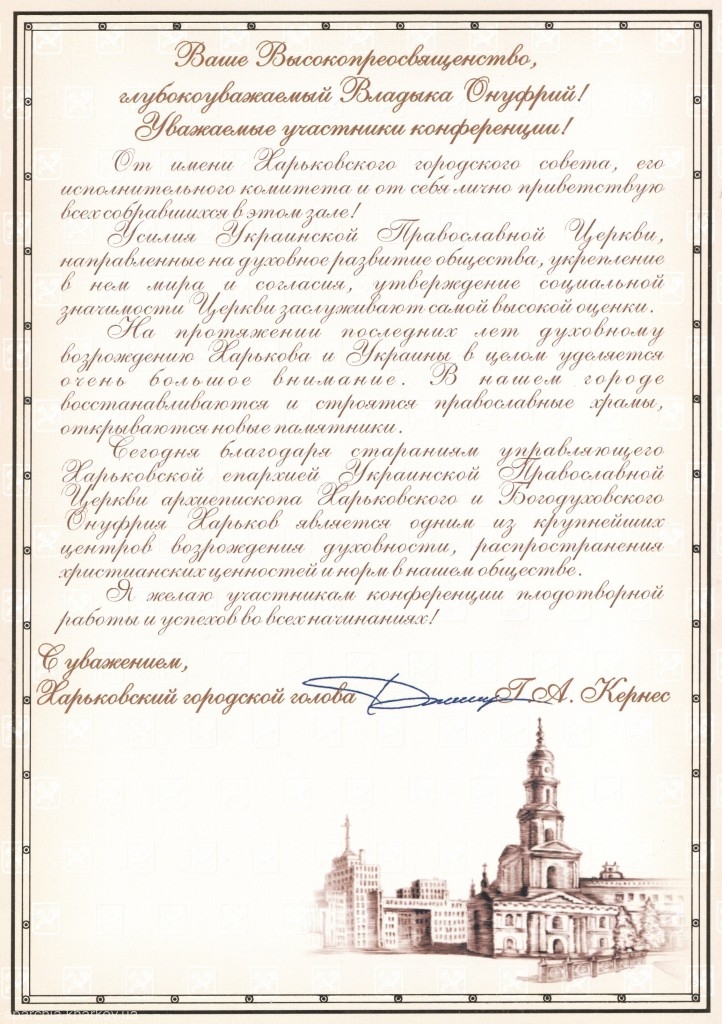 Ваше Высокопреосвященство,
глубокоуважаемый Владыка Онуфрий!
Уважаемые участники конференции!
От имени Харьковского городского совета, его
исполнительного комитета и от себя лично приветствую
всех собравшихся в этом зале!
Усилия Украинской Православной Церкви,
направленные на духовное развитие общества, укрепление
в нем мира и согласия, утверждение социальной
значимости Церкви заслуживают самой высокой оценки.
На протяжении последних лет духовному
возрождению Харькова и Украины в целом уделяется
очень большое внимание. В нашем городе
восстанавливаются и строятся православные храмы,
открываются новые памятники.
Сегодня благодаря стараниям управляющего
Харьковской епархией Украинской Православной
Церкви архиепископа Харьковского и Богодуховского
Онуфрия Харьков является одним из крупнейших
центров возрождения духовности, распространения
христианских ценностей и норм в нашем обществе.
Я желаю участникам конференции плодотворной
работы и успехов во всех начинаниях!
С уважением,
Харьковский городской голова Г. А. Кернес